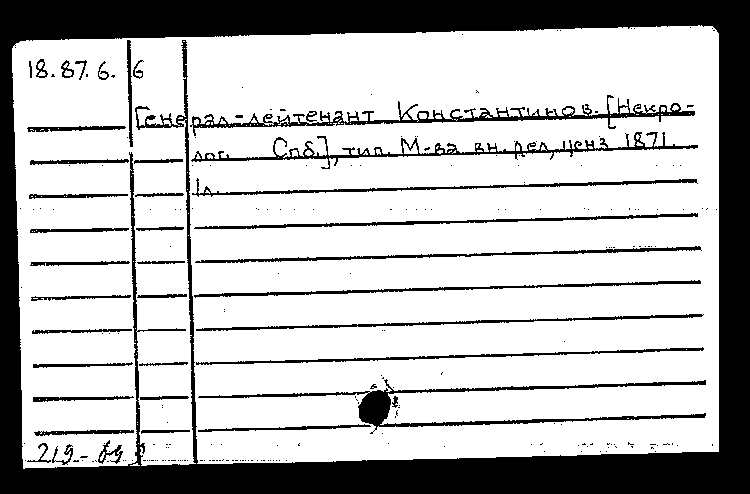 18.87.6. 6
Генерал-лейтенант Константинов. [Некро-
лог. Спб.], тип. М-ва вн. дел, ценз 1871.
1л.
219-69